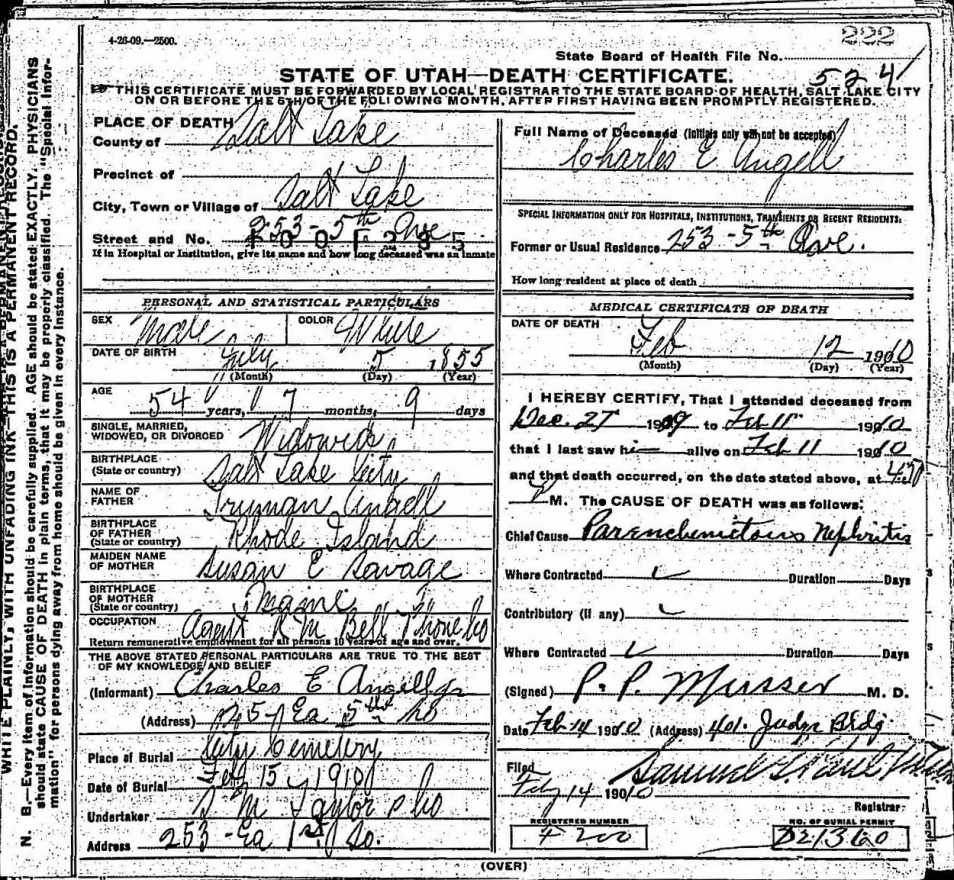 4-26-09.—2500.
222
State Board of Health File No.
524
STATE OF UTAH—DEATH CERTIFICATE.
THIS CERTIFICATE MUST BE FORWARDED BY LOCAL REGISTRAR TO THE STATE BOARD OF HEALTH, SALT LAKE CITY
ON OR BEFORE THE 5TH OF THE FOLLOWING MONTH, AFTER FIRST HAVING BEEN PROMPTLY REGISTERED.
PLACE OF DEATH
County of Salt Lake
Precinct of
City, Town or Village of Salt Lake
Street and No. 253-5th Ave
If in Hospital or Institution, give its name and how long deceased was an inmate
PERSONAL AND STATISTICAL PARTICULARS
SEX Male COLOR White
DATE OF BIRTH July 5 1855
(Month) (Day) (Year)
AGE
54 years, 7 months, 9 days
SINGLE, MARRIED,
WIDOWED, OR DIVORCED Widowed
BIRTHPLACE
(State or country) Salt Lake City
NAME OF
FATHER Truman Angell
BIRTHPLACE
OF FATHER
(State or country) Rhode Island
MAIDEN NAME
OF MOTHER Susan E Savage
BIRTHPLACE
OF MOTHER
(State or country) Maine
OCCUPATION Agent R M Bell Phone Co
Return remunerative employment for all persons 10 years of age and over.
THE ABOVE STATED PERSONAL PARTICULARS ARE TRUE TO THE BEST
OF MY KNOWLEDGE AND BELIEF
(Informant) Charles E Angell jr
(Address) Ea 5th So
Place of Burial City Cemetery
Date of Burial Feb 15 1910
Undertaker S M Taylor & Co
Address 253-Ea 1st So.
Full Name of Deceased (Initials only will not be accepted)
Charles E Angell
SPECIAL INFORMATION ONLY FOR HOSPITALS, INSTITUTIONS, TRANSIENTS OR RECENT RESIDENTS:
Former or Usual Residence 253-5th Ave.
How long resident at place of death
MEDICAL CERTIFICATE OF DEATH
DATE OF DEATH
Feb 12 1910
(Month) (Day) (Year)
I HEREBY CERTIFY, That I attended deceased from
Dec. 27 1909 to Feb 11 1910
that I last saw him alive on Feb 11 1910
and that death occurred, on the date stated above, at
P M. The CAUSE OF DEATH was as follows:
Chief Cause Parenchemitous Nephritis
Where Contracted Duration Days
Contributory (if any)
Where Contracted Duration Days
(Signed) P. P. Musser M. D.
Date Feb 14 1910 (Address) 401 Judge Bldg
Filed
Feby 14 1910
Samuel G. Paul
Registrar
REGISTERED NUMBER
4200
NO. OF BURIAL PERMIT
D21360
(OVER)
WHITE PLAINLY, WITH UNFADING INK—THIS IS A PERMANENT RECORD.
N. B.—Every item of information should be carefully supplied. AGE should be stated EXACTLY. PHYSICIANS
should state CAUSE OF DEATH in plain terms, that it may be properly classified. The "Special Infor-
mation" for persons dying away from home should be given in every instance.